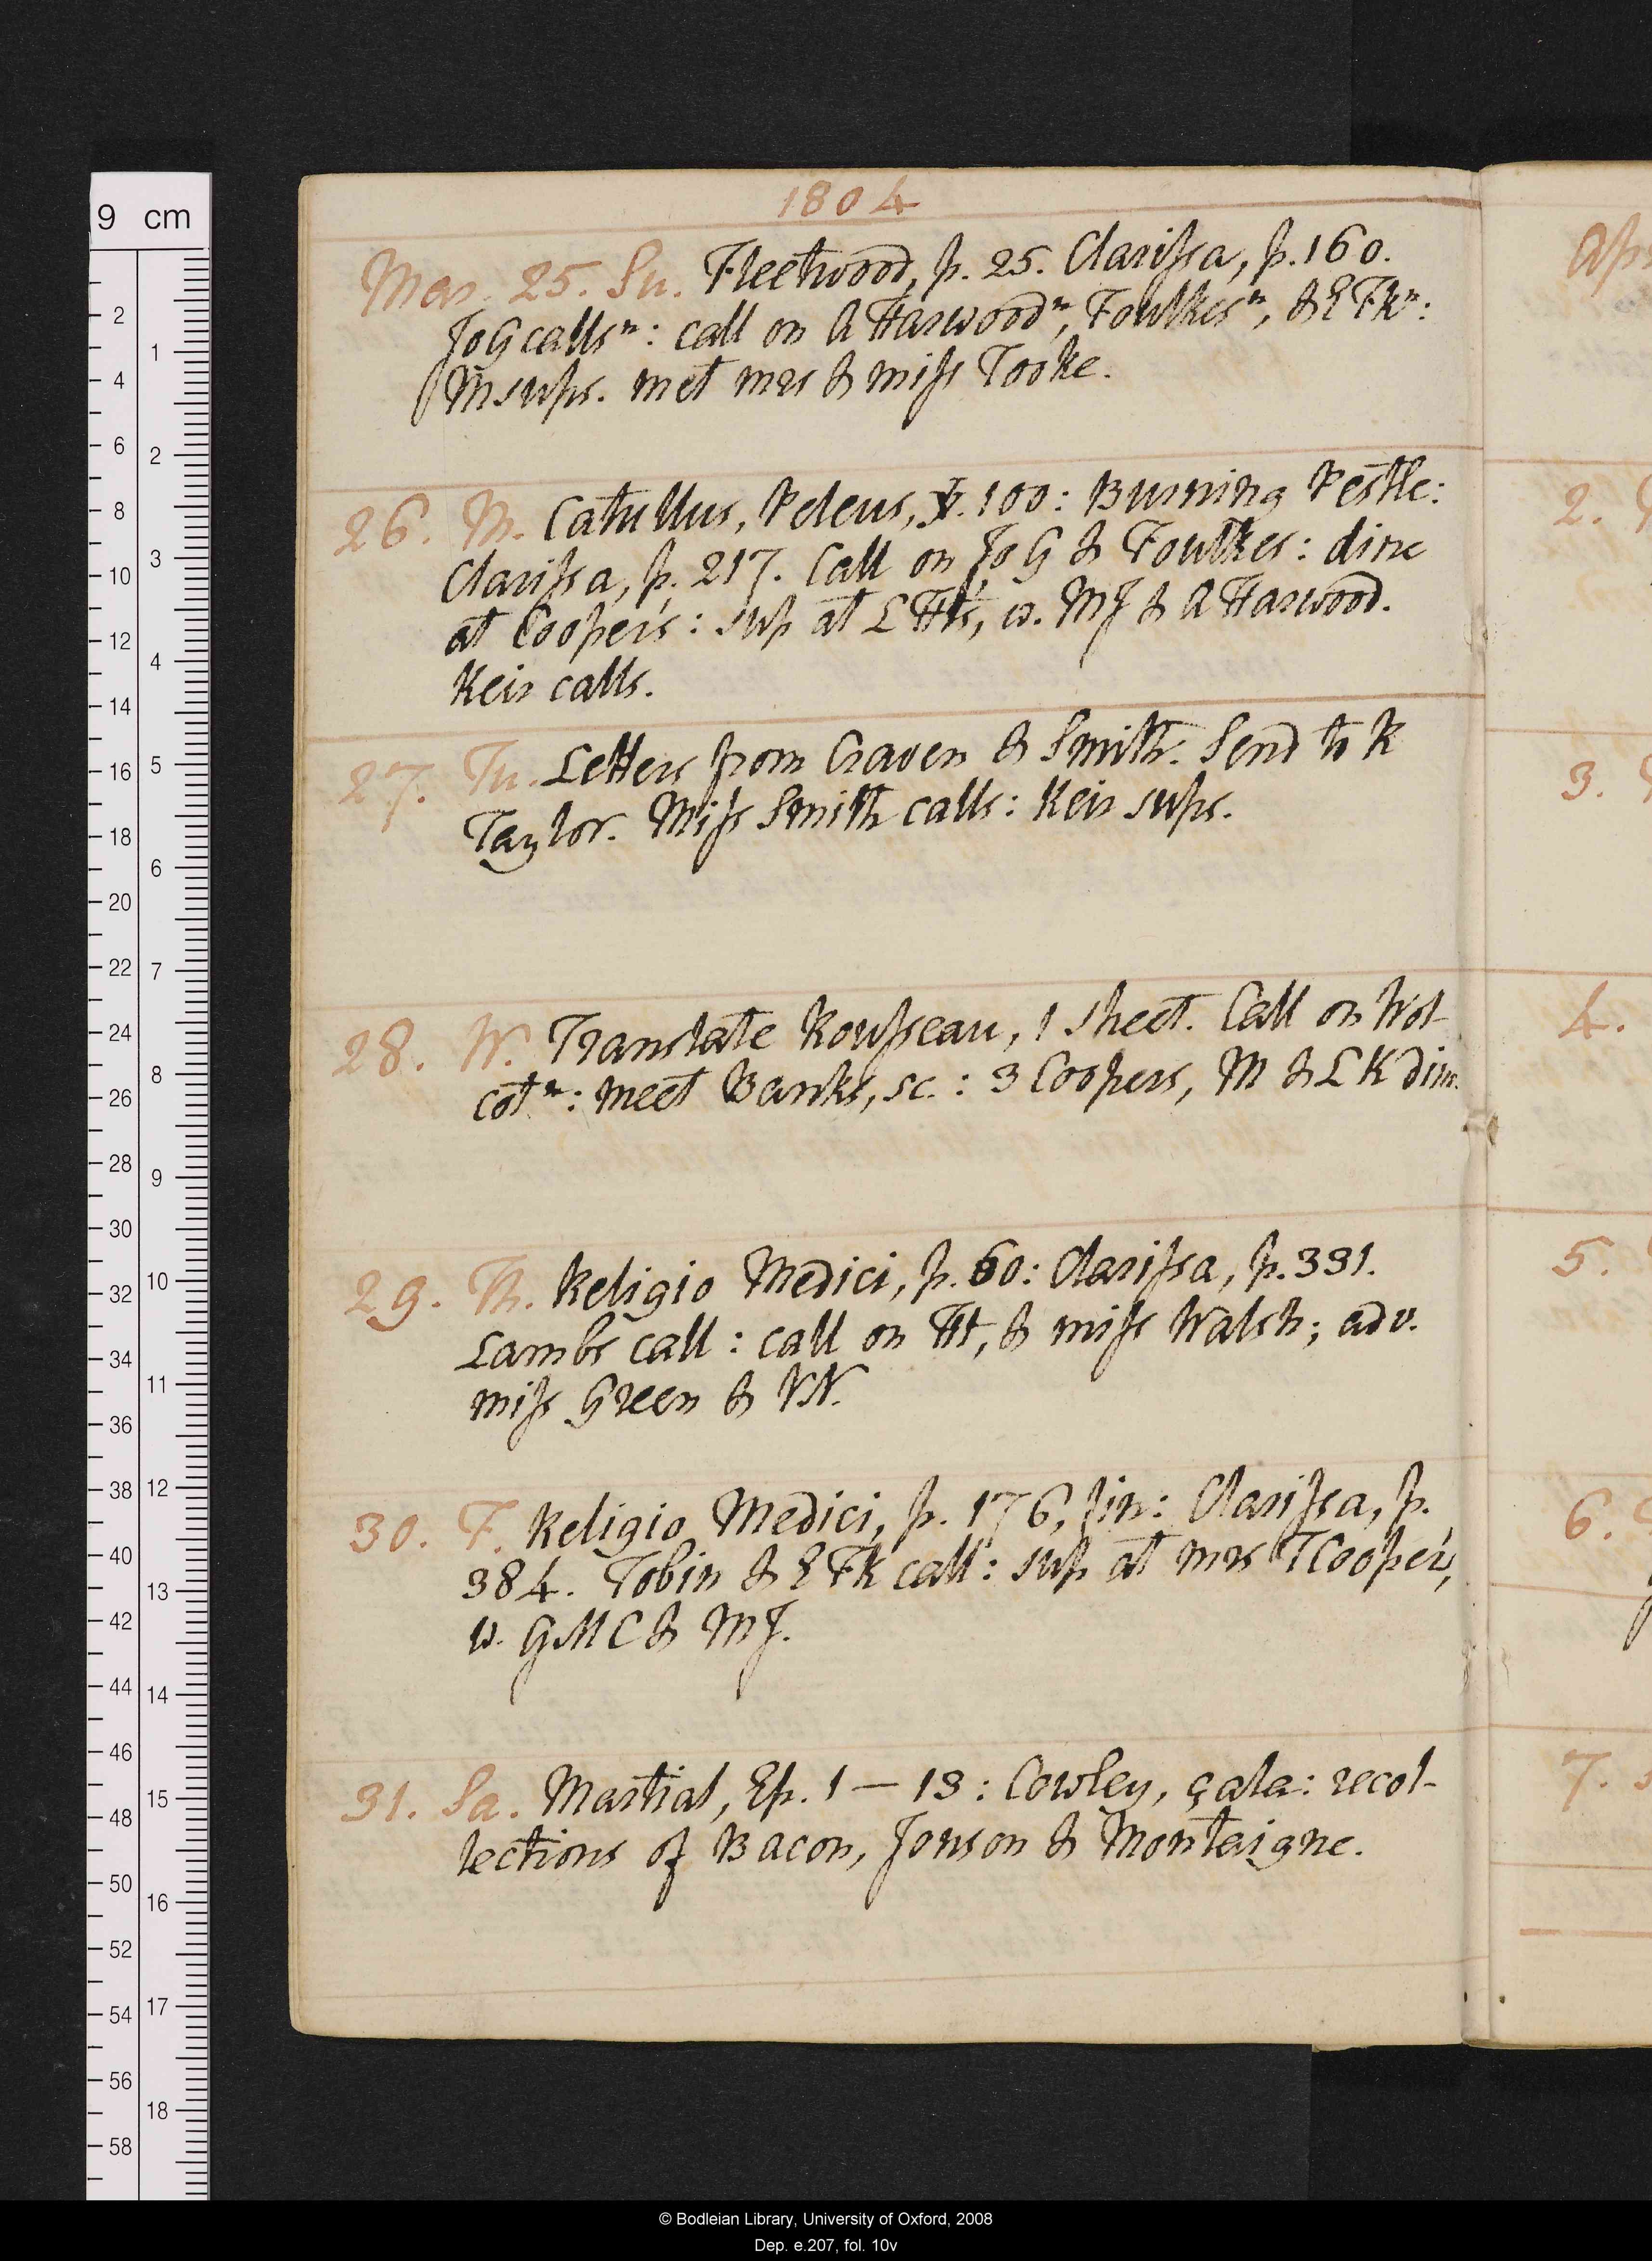 1804
Mar. 25. Su. Fleetwood, p. 25. Clarissa, p. 160.
JoG calls ⁿ: call on A Harwood ⁿ, Foulkes ⁿ, & E Fk ⁿ:
M sups. met mrs & miss Tooke.
26. M. Catullus, Peleus, v. 100: Burning Pestle:
Clarissa, p. 217. Call on Jo G & Foulkes: dine
at Cooper's: sup at L Ht's, w. MJ & A Harwood.
Keir calls.
27. Tu. Letters from Craven & Smith. Send to R
Taylor. Miss Smith calls: Keir sups.
28. W. Translate Rousseau, 1 sheet. Call on Wol-
cot ⁿ: meet Banks, sc.: 3 Coopers, M & L K dine.
29. Th. Religio Medici, p. 60: Clarissa, p. 331.
Lambs call: call on Ht, & miss Walsh; adv.
miss Green & VN.
30. F. Religio Medici, p. 176, fin: Clarissa, p.
384. Tobin & E Fk call: sup at mrs T Cooper's,
w. GMC & MJ.
31. Sa. Martial, Ep. 1 — 13: Cowley, çala: recol-
lections of Bacon, Jonson & Montaigne.
Ap
2.
3.
4.
5.
6.
7.
9 cm
2
4
6
8
10
12
14
16
18
20
22
24
26
28
30
32
34
36
38
40
42
44
46
48
50
52
54
56
58
1
2
3
4
5
6
7
8
9
10
11
12
13
14
15
16
17
18
© Bodleian Library, University of Oxford, 2008
Dep. e.207, fol. 10v